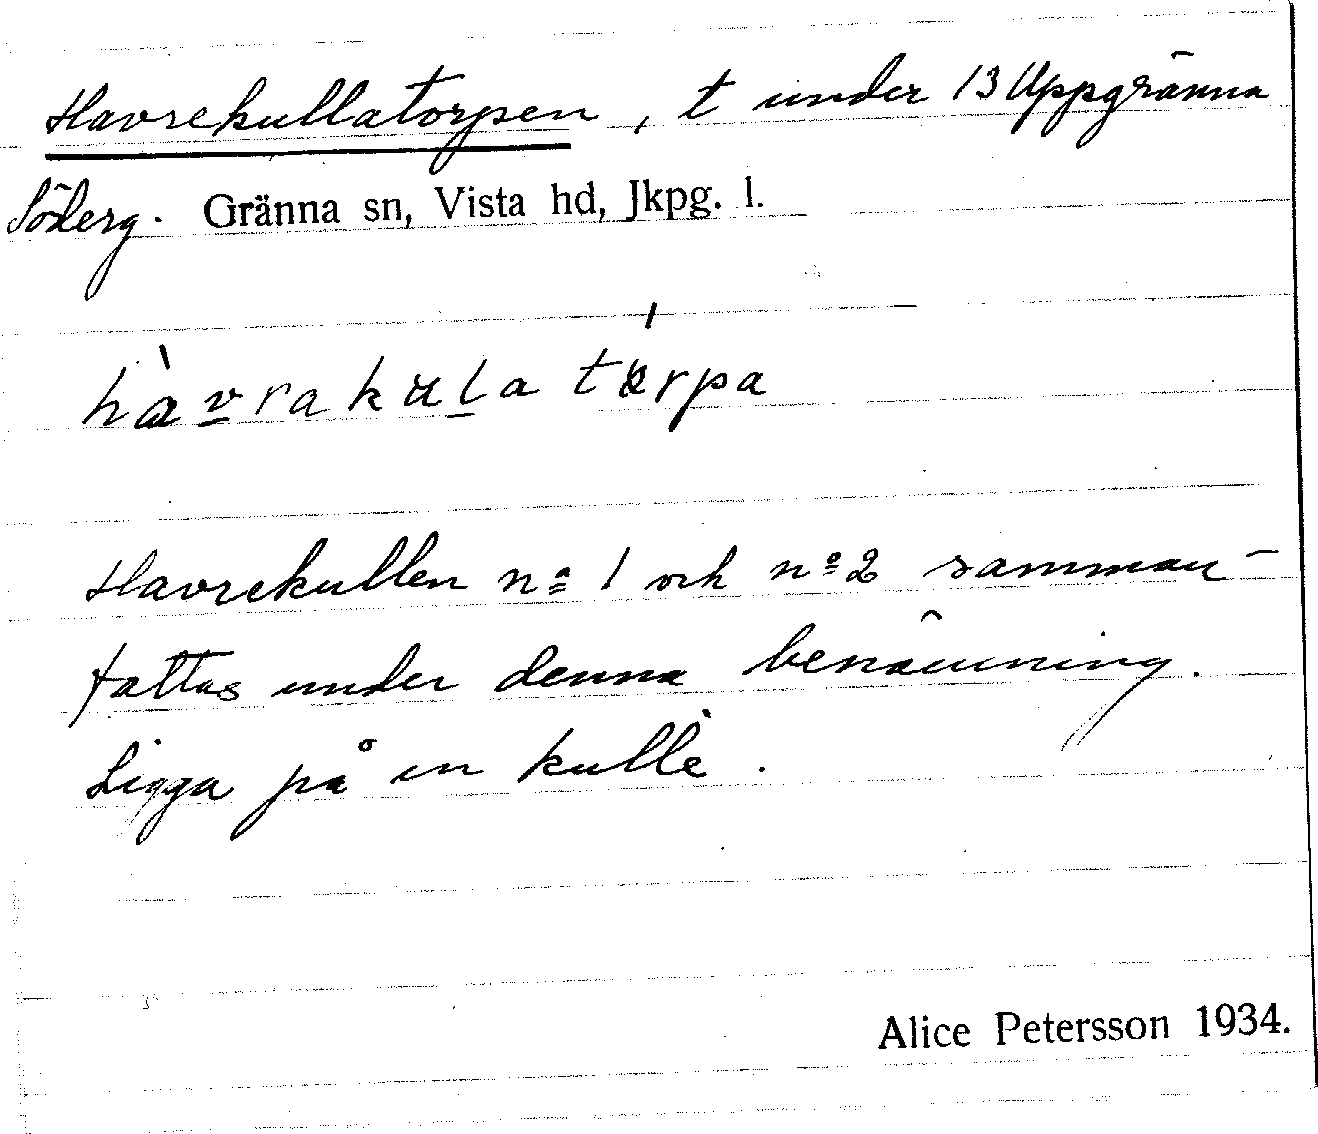 Havrekullatorpen, t under 13 Uppgränna
Söderg. Gränna sn, Vista hd, Jkpg. l.
hàvrakulatórpa
Havrekullen nº 1 och nº 2 samman-
fattas under denna benämning.
Ligga på en kulle.
Alice Petersson 1934.